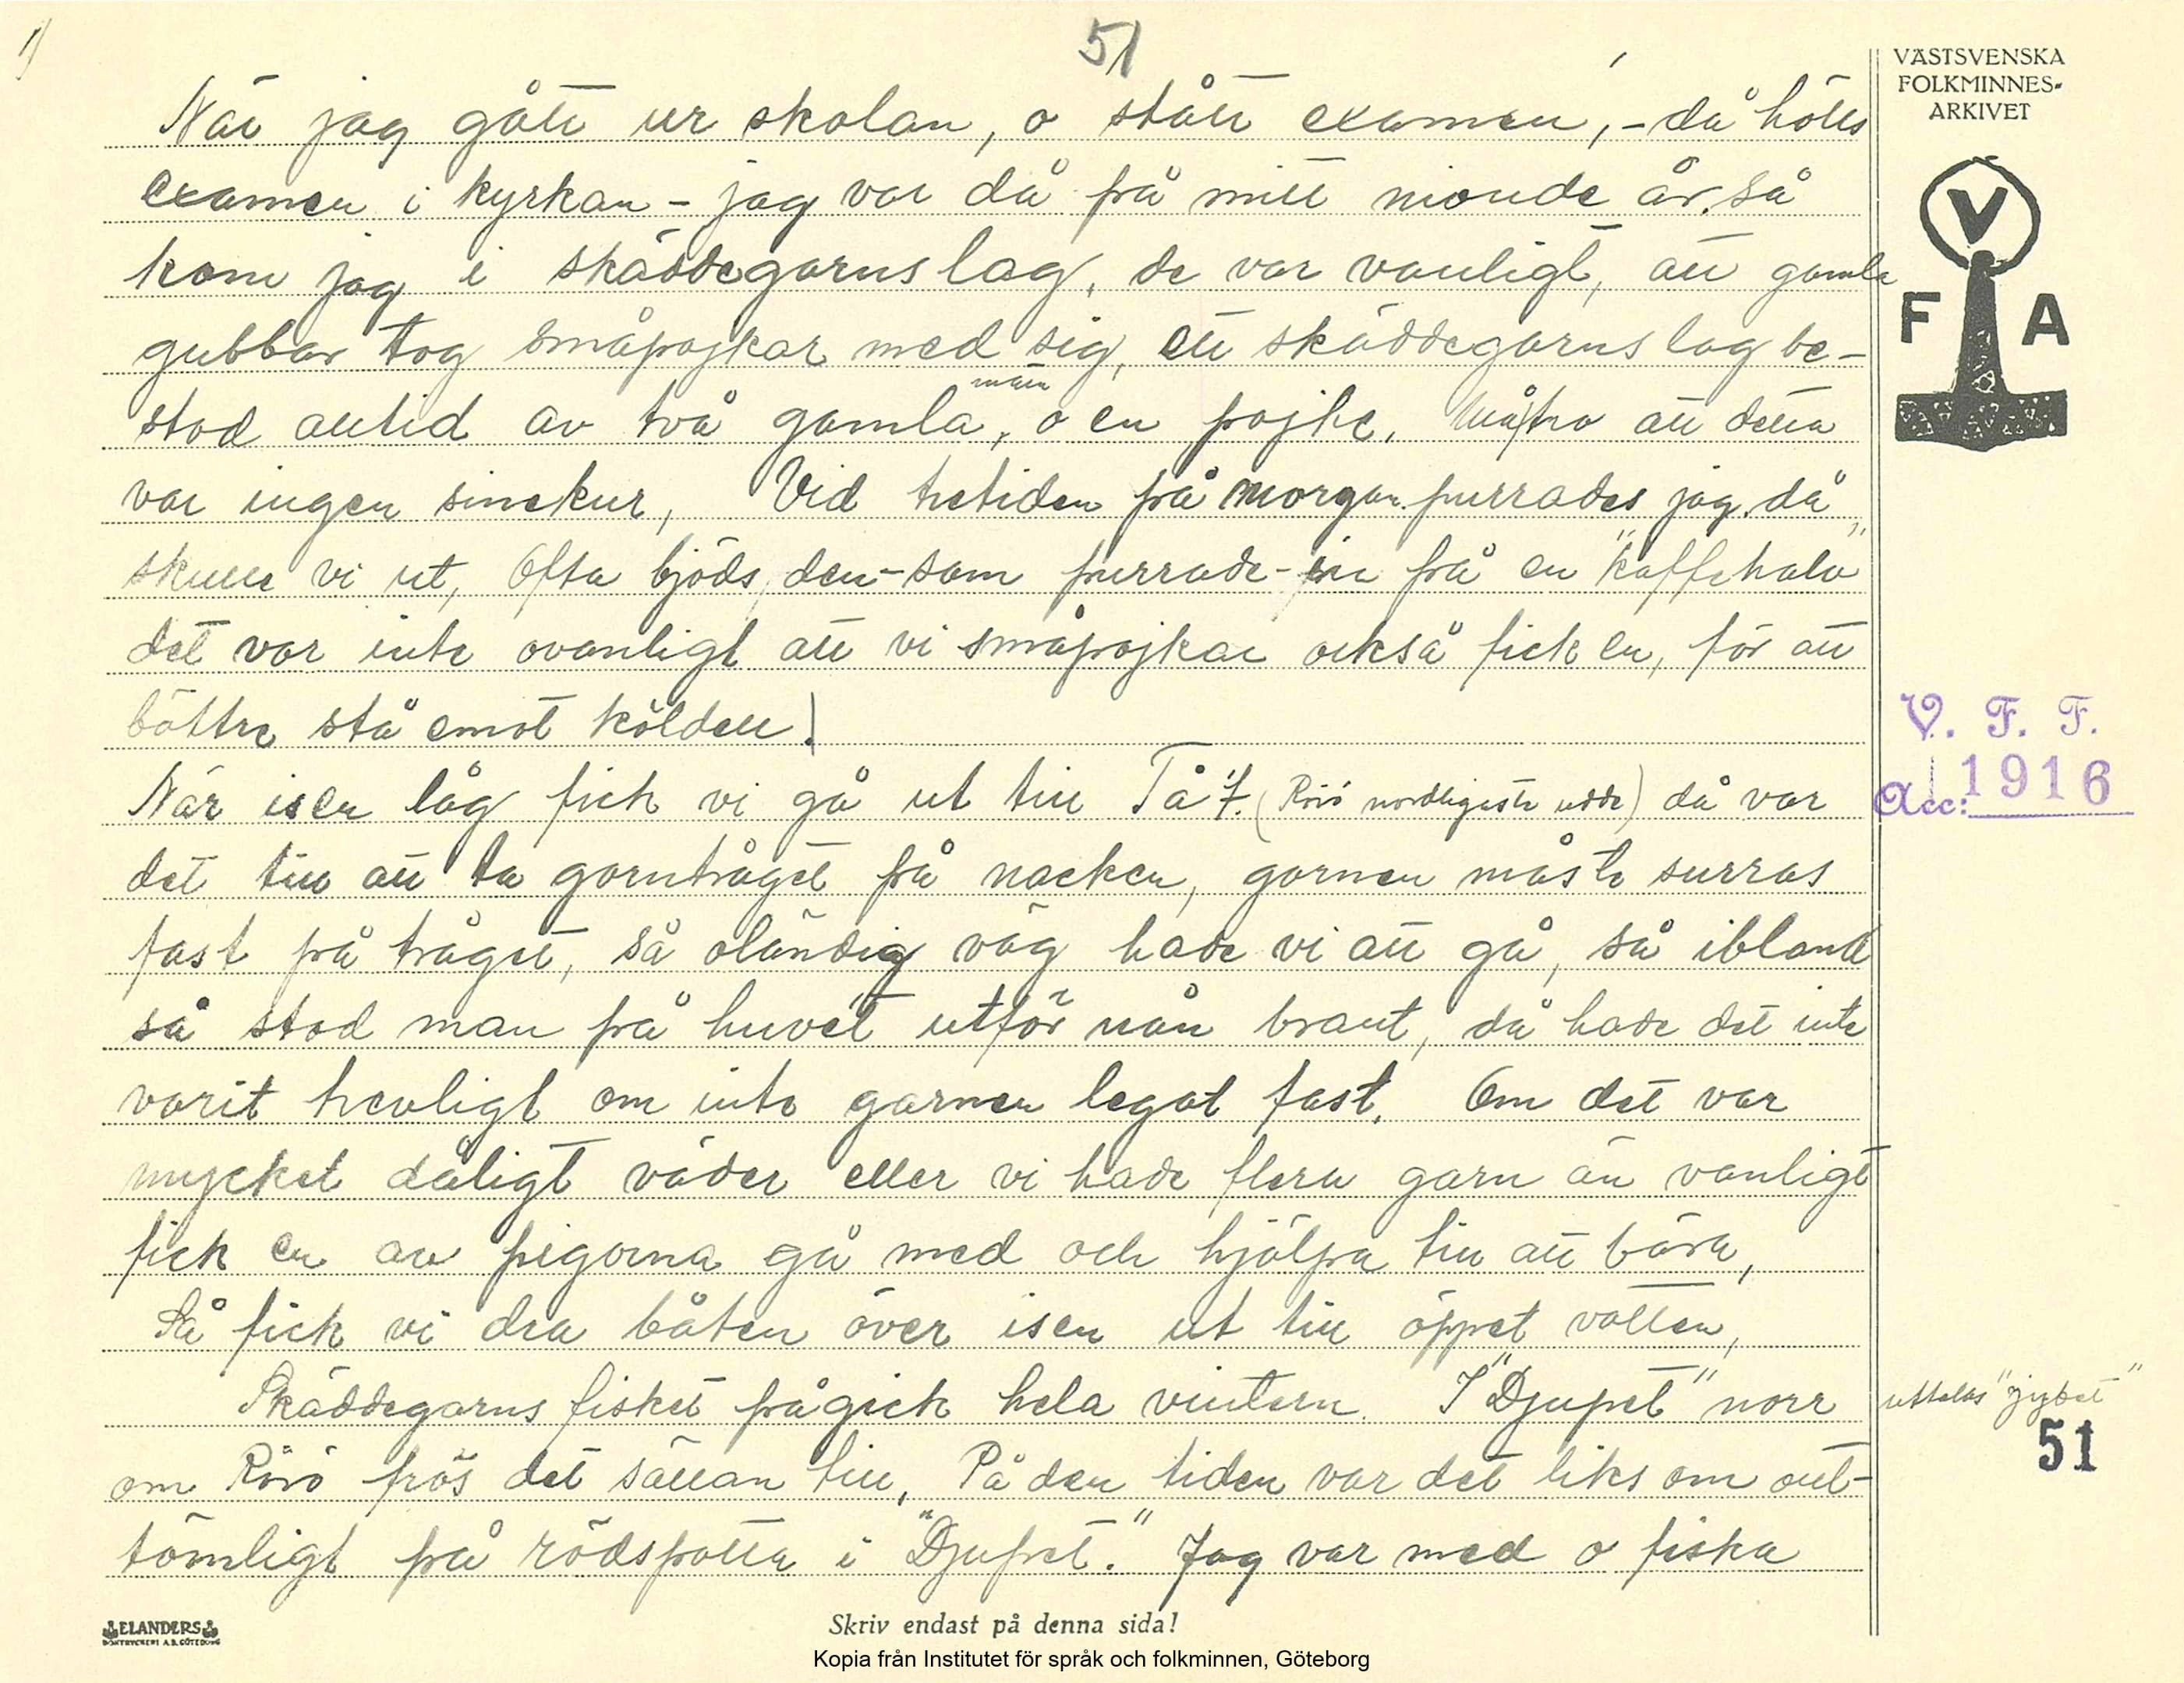 1)
51
VÄSTSVENSKA
FOLKMINNES-
ARKIVET
V
F A
När jag gått ur skolan, o stått examen, - då hölls
examen i kyrkan - jag var då på mitt nionde år, så
kom jag i skäddegarnslag, de var vanligt, att gamla
gubbar tog småpojkar med sig, ett skäddegarnslag be-
stod alltid av två gamla män, o en pojke. Må tro att detta
var ingen sinekur, Vid tretiden på morgon purrades jag, då
skulle vi ut, Ofta bjöds, den-som purrade- in på en "kaffehalv"
det var inte ovanligt att vi småpojkar också fick en, för att
bättre stå emot kölden!
När isen låg fick vi gå ut till Tå't. (Rörö nordligaste udde) då var
det till att ta garntråget på nacken, garnen måste surras
fast på tråget, så oländig väg hade vi att gå, så ibland
så stod man på huvet utför nån brant, då hade det inte
varit trevligt om inte garnen legat fast. Om det var
mycket dåligt väder eller vi hade flera garn än vanligt
fick en av pigorna gå med och hjälpa till att bära,
Så fick vi dra båten över isen ut till öppet vatten,
Skäddegarnsfisket pågick hela vintern. I "Djupet" norr
om Rörö frös det sällan till, På den tiden var det liksom out-
tömligt på rödspotta i "Djupet." Jag var med o fiska
V. F. F.
Acc: 1916
uttalas "jybet"
51
ELANDERS
BOKTRYCKERI A.B. GÖTEBORG
Skriv endast på denna sida!
Kopia från Institutet för språk och folkminnen, Göteborg